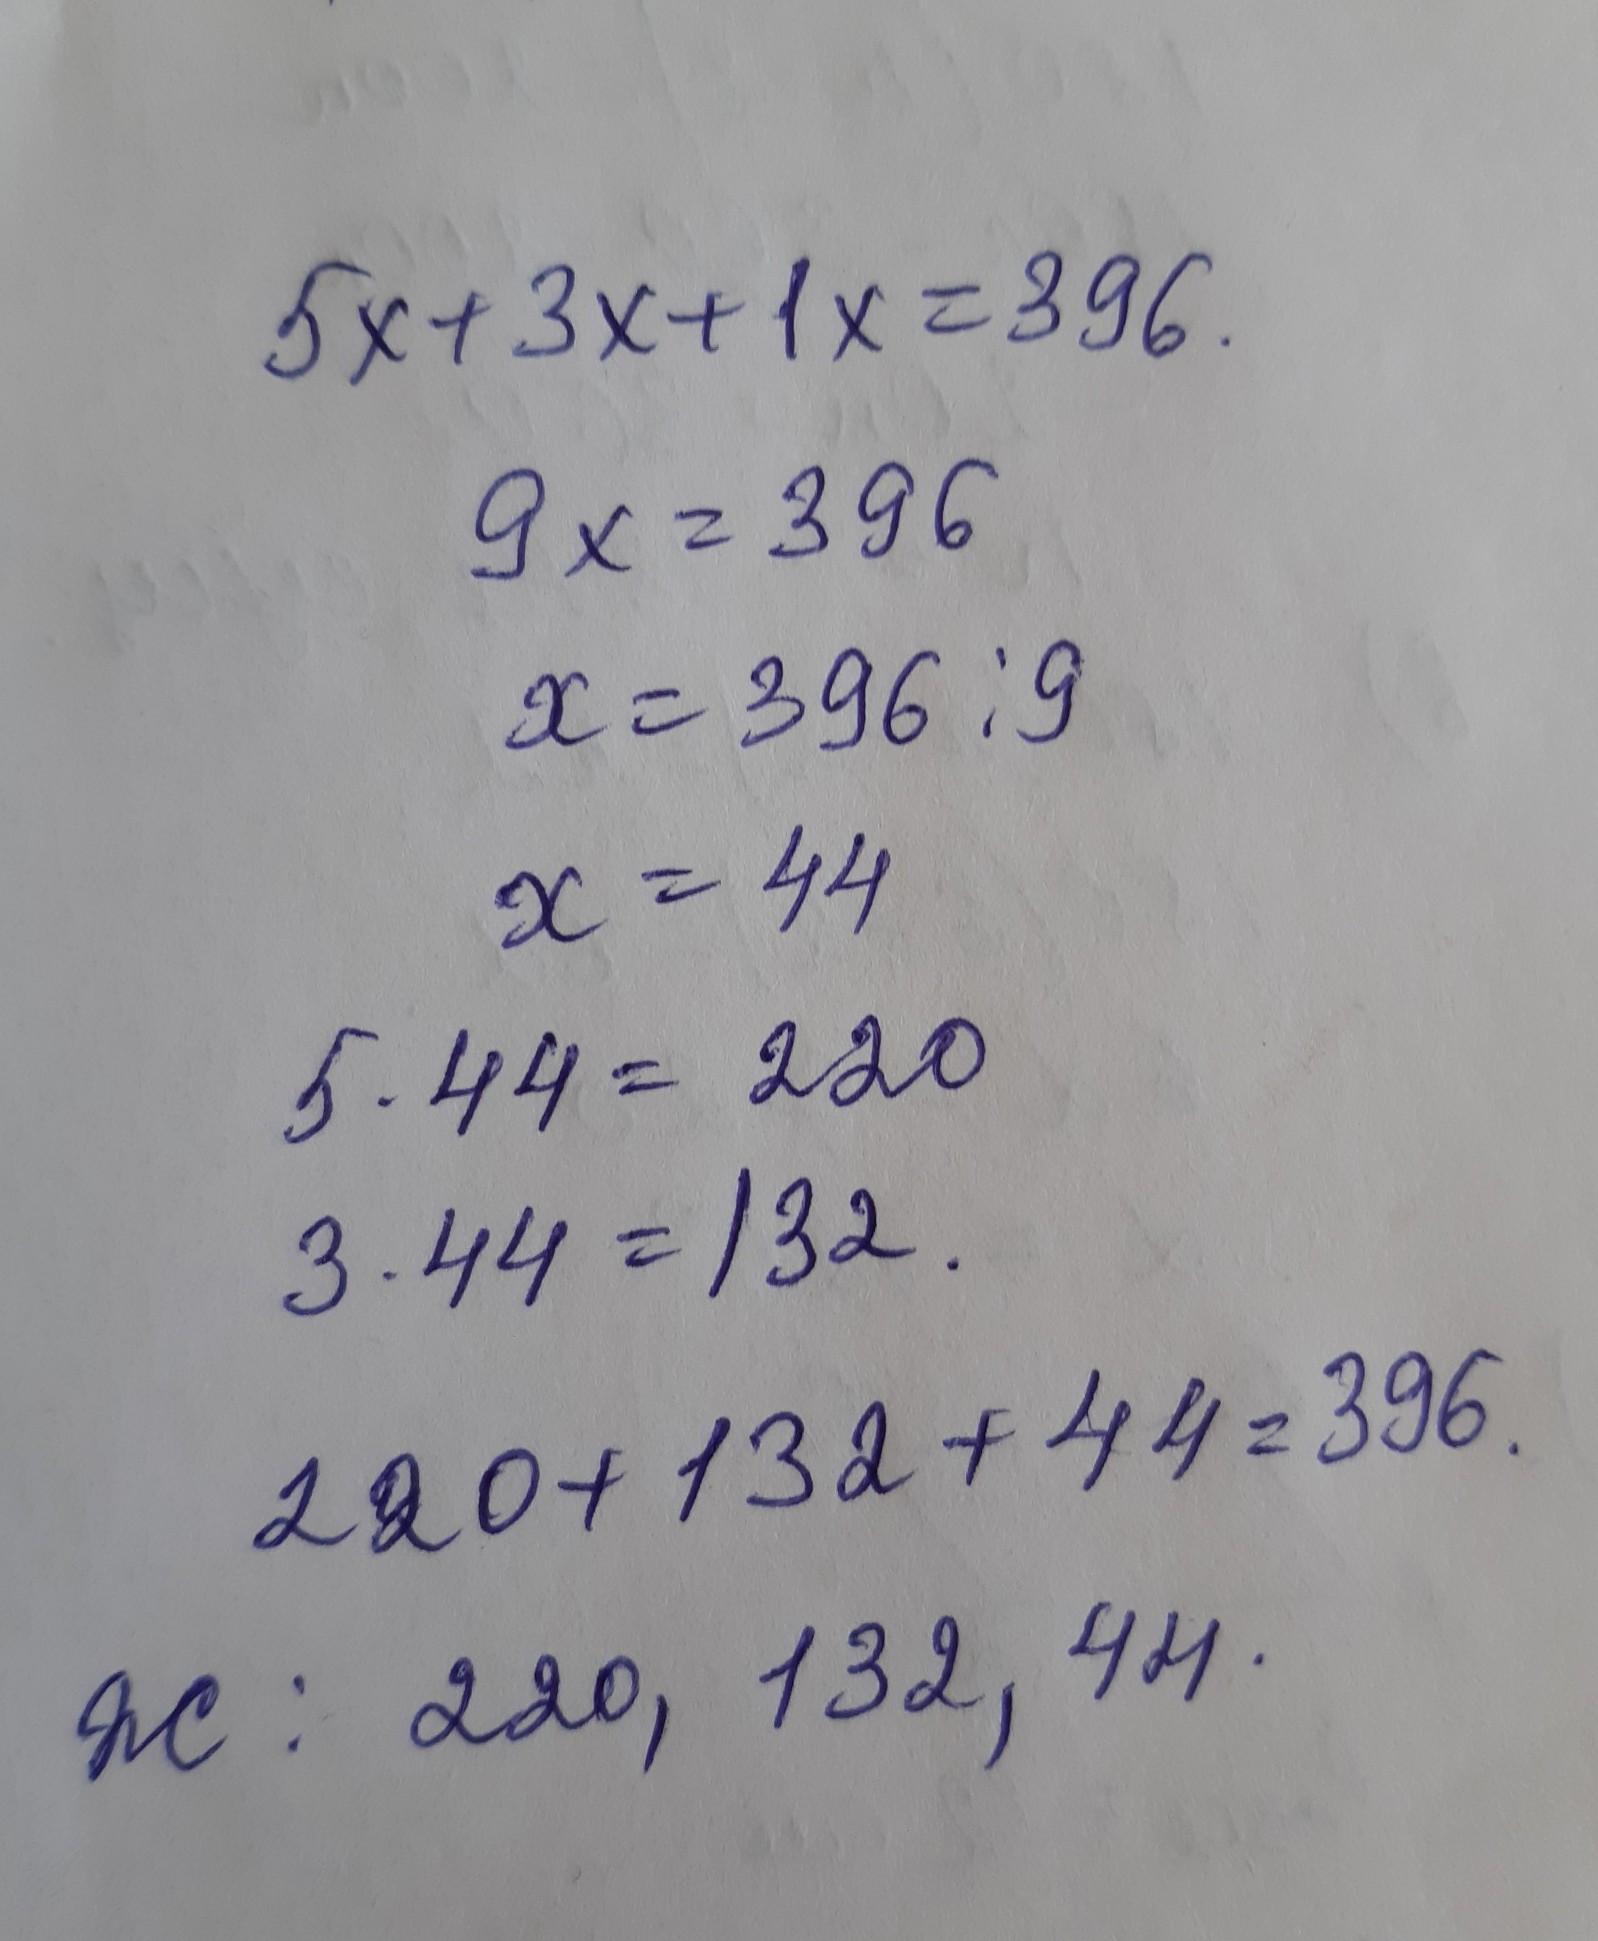 5x+3x+1x=396.
9x=396
x=396:9
x=44
5·44=220
3·44=132.
220+132+44=396.
Ж: 220, 132, 44.